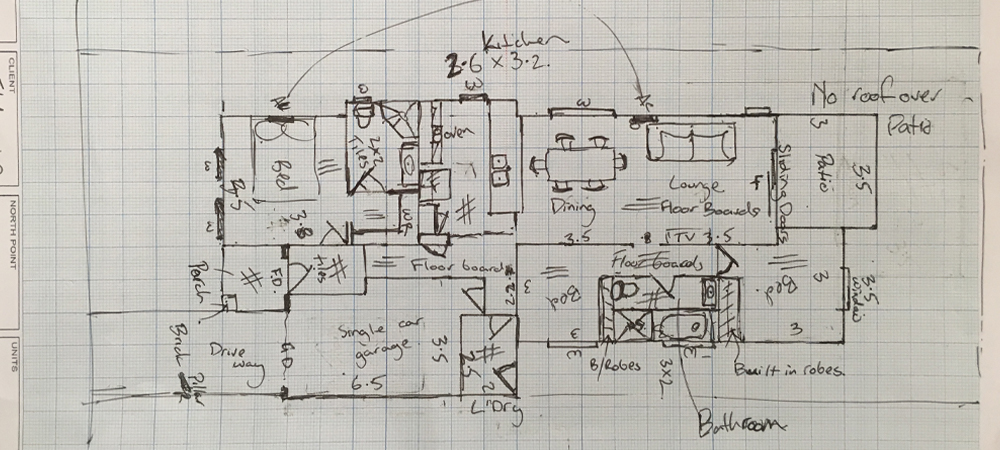 CLIENT
NORTH POINT
UNITS
Kitchen
2.6 x 3.2.
No roof over
Patio
W
3
W
Oven
Bed
2x2
Tiles
Lounge
Floor Boards
Dining
Sliding Doors
Patio
3
3.5
W
W
3.8
WR
3.5
TV 3.5
Porch
F.D.
Tiles
Floor boards
Floor boards
Bed
3
Bed
3
3.5
window
3
W
W
Drive
way
Brick
Pillar
G.D.
Single car
garage
3.5
6.5
L'Dry
B/Robes
3x2
Built in robes
Bathroom